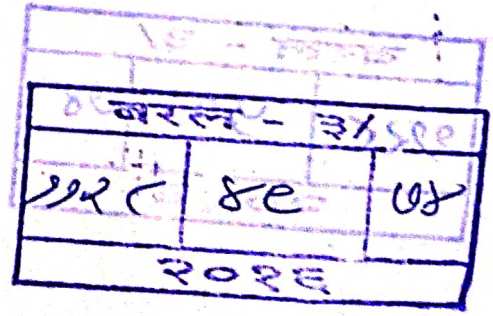 बरल - ३/
११२८ ४९ ७४
२०१६